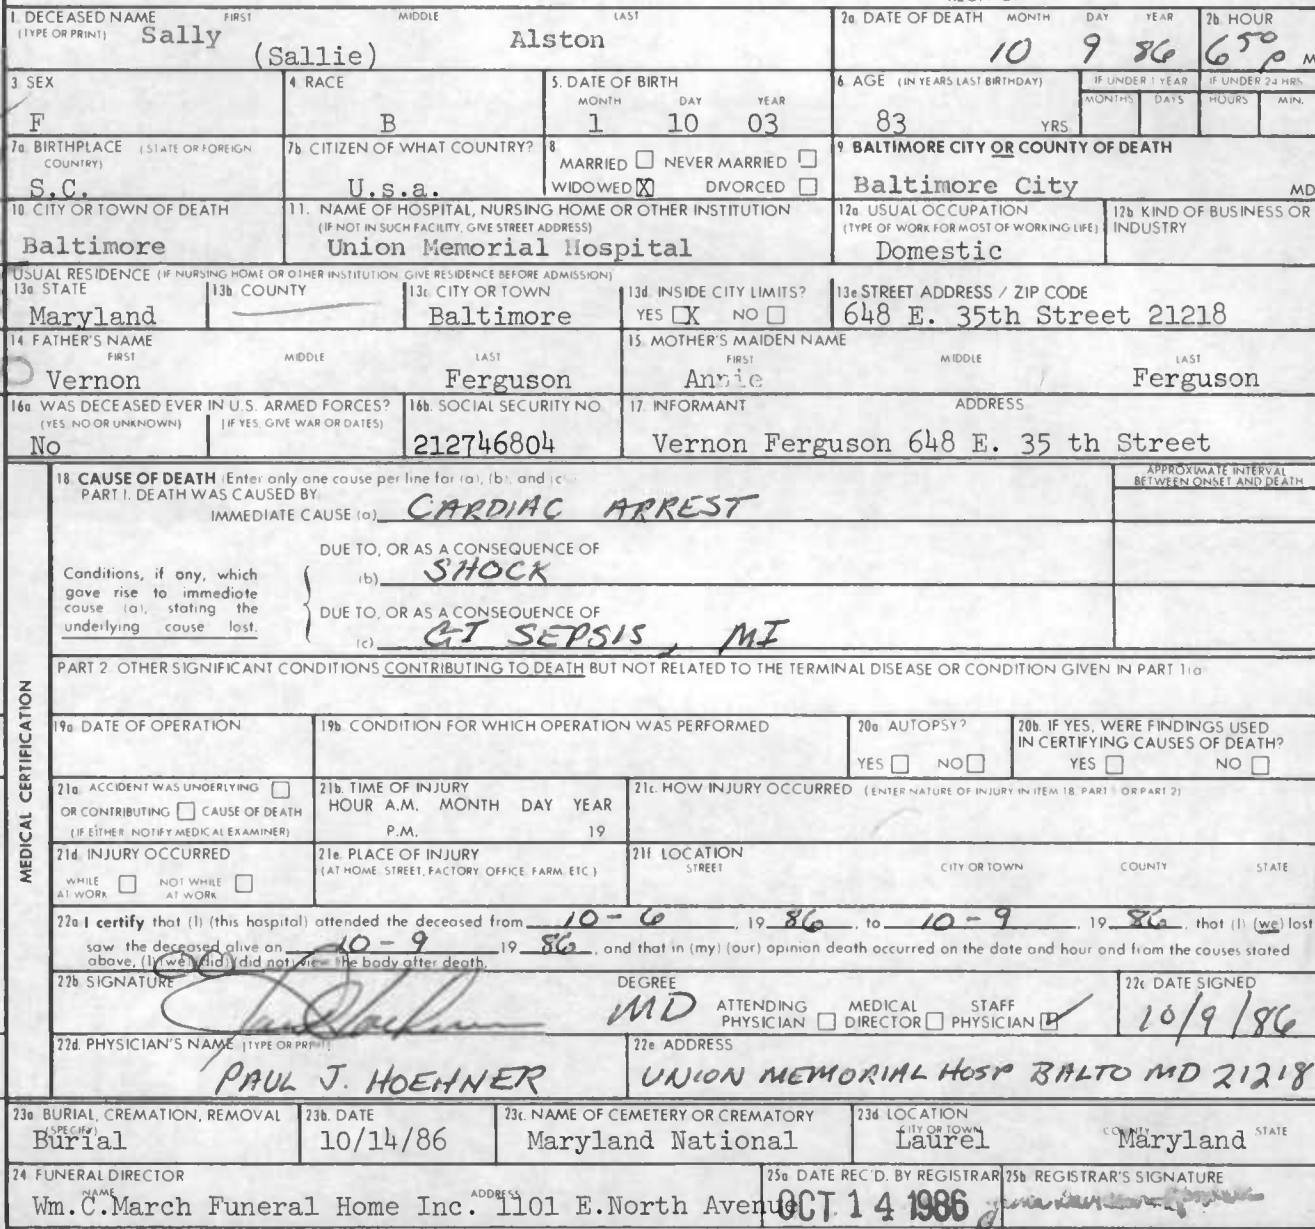 1. DECEASED NAME FIRST MIDDLE LAST
(TYPE OR PRINT) Sally (Sallie) Alston
2a DATE OF DEATH MONTH DAY YEAR
10 9 86
2b HOUR
6 50 P M
3 SEX
F
4 RACE
B
5. DATE OF BIRTH
MONTH DAY YEAR
1 10 03
6 AGE (IN YEARS LAST BIRTHDAY)
83 YRS
IF UNDER 1 YEAR
MONTHS DAYS
IF UNDER 24 HRS
HOURS MIN.
7a BIRTHPLACE (STATE OR FOREIGN COUNTRY)
S.C.
7b CITIZEN OF WHAT COUNTRY?
U.s.a.
8
MARRIED NEVER MARRIED
WIDOWED X DIVORCED
9 BALTIMORE CITY OR COUNTY OF DEATH
Baltimore City MD
10 CITY OR TOWN OF DEATH
Baltimore
11. NAME OF HOSPITAL, NURSING HOME OR OTHER INSTITUTION
(IF NOT IN SUCH FACILITY, GIVE STREET ADDRESS)
Union Memorial Hospital
12a USUAL OCCUPATION
(TYPE OF WORK FOR MOST OF WORKING LIFE)
Domestic
12b KIND OF BUSINESS OR
INDUSTRY
USUAL RESIDENCE (IF NURSING HOME OR OTHER INSTITUTION GIVE RESIDENCE BEFORE ADMISSION)
13a STATE
Maryland
13b COUNTY
13c CITY OR TOWN
Baltimore
13d. INSIDE CITY LIMITS?
YES X NO
13e STREET ADDRESS / ZIP CODE
648 E. 35th Street 21218
14 FATHER'S NAME
FIRST MIDDLE LAST
Vernon Ferguson
15 MOTHER'S MAIDEN NAME
FIRST MIDDLE LAST
Annie Ferguson
16a WAS DECEASED EVER IN U.S. ARMED FORCES?
(YES, NO OR UNKNOWN) (IF YES, GIVE WAR OR DATES)
No
16b. SOCIAL SECURITY NO
212746804
17 INFORMANT ADDRESS
Vernon Ferguson 648 E. 35 th Street
MEDICAL CERTIFICATION
18 CAUSE OF DEATH (Enter only one cause per line for (a), (b), and (c)
PART I. DEATH WAS CAUSED BY
IMMEDIATE CAUSE (a) CARDIAC ARREST
APPROXIMATE INTERVAL
BETWEEN ONSET AND DEATH
Conditions, if any, which
gave rise to immediate
cause (a), stating the
underlying cause last.
DUE TO, OR AS A CONSEQUENCE OF
(b) SHOCK
DUE TO, OR AS A CONSEQUENCE OF
(c) GI SEPSIS, MI
PART 2 OTHER SIGNIFICANT CONDITIONS CONTRIBUTING TO DEATH BUT NOT RELATED TO THE TERMINAL DISEASE OR CONDITION GIVEN IN PART 1(a)
19a DATE OF OPERATION
19b. CONDITION FOR WHICH OPERATION WAS PERFORMED
20a AUTOPSY?
YES NO
20b. IF YES, WERE FINDINGS USED
IN CERTIFYING CAUSES OF DEATH?
YES NO
21a. ACCIDENT WAS UNDERLYING
OR CONTRIBUTING CAUSE OF DEATH
(IF EITHER NOTIFY MEDICAL EXAMINER)
21b. TIME OF INJURY
HOUR A.M. MONTH DAY YEAR
P.M. 19
21c. HOW INJURY OCCURRED (ENTER NATURE OF INJURY IN ITEM 18, PART 1 OR PART 2)
21d. INJURY OCCURRED
WHILE AT WORK NOT WHILE AT WORK
21e PLACE OF INJURY
(AT HOME, STREET, FACTORY, OFFICE, FARM, ETC)
21f LOCATION
STREET CITY OR TOWN COUNTY STATE
22a I certify that (I) (this hospital) attended the deceased from 10-6, 19 86, to 10-9 19 86, that (I) (we) last
saw the deceased alive on 10-9 19 86, and that in (my) (our) opinion death occurred on the date and hour and from the causes stated
above, (I) (we) (did) (did not) view the body after death.
22b. SIGNATURE
DEGREE
MD
ATTENDING PHYSICIAN MEDICAL DIRECTOR STAFF PHYSICIAN
22c DATE SIGNED
10/9/86
22d. PHYSICIAN'S NAME (TYPE OR PRINT)
PAUL J. HOEHNER
22e ADDRESS
UNION MEMORIAL HOSP BALTO MD 21218
23a BURIAL, CREMATION, REMOVAL
(SPECIFY)
Burial
23b. DATE
10/14/86
23c. NAME OF CEMETERY OR CREMATORY
Maryland National
23d LOCATION
CITY OR TOWN COUNTY STATE
Laurel Maryland
24 FUNERAL DIRECTOR
NAME ADDRESS
Wm.C.March Funeral Home Inc. 1101 E.North Avenue
25a DATE REC'D. BY REGISTRAR
OCT 14 1986
25b REGISTRAR'S SIGNATURE